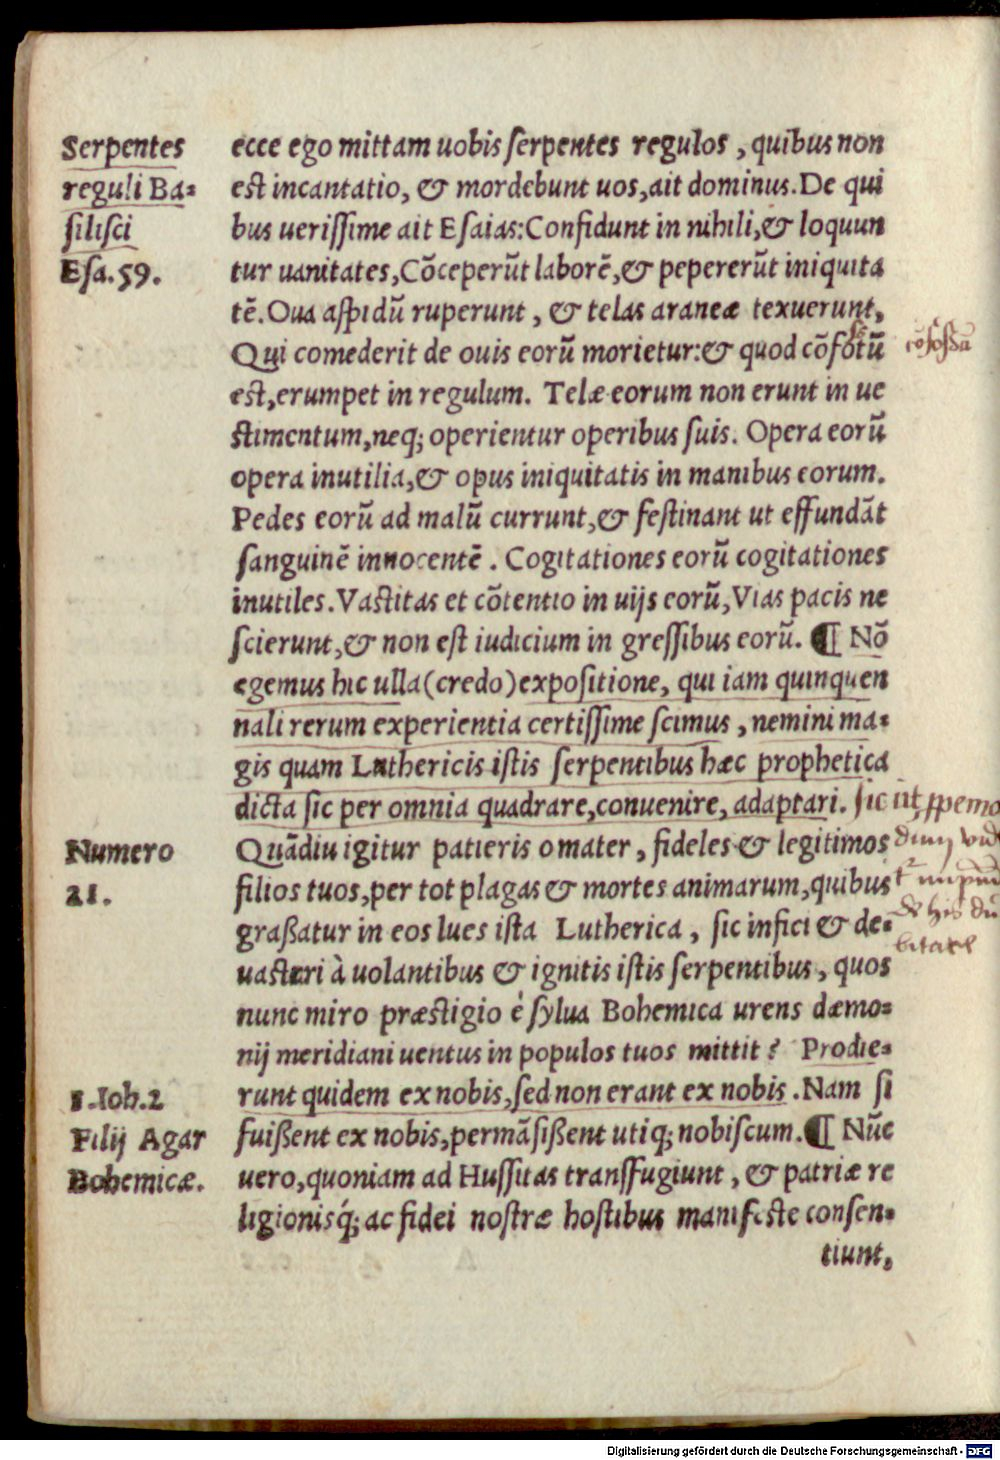 Serpentes
reguli Ba⸗
ſiliſci
Eſa.59.
ecce ego mittam uobis ſerpentes regulos, quibus non
est incantatio, & mordebunt uos, ait dominus. De qui
bus ueriſſime ait Eſaias: Confidunt in nihili, & loquun
tur uanitates, Cōceperūt laborē, & pepererūt iniquita
tē. Oua aſpidū ruperunt, & telas araneæ texuerunt,
Qui comederit de ouis eorū morietur: & quod cōfotū
est, erumpet in regulum. Telæ eorum non erunt in ue
stimentum, neq; operientur operibus ſuis. Opera eorū
opera inutilia, & opus iniquitatis in manibus eorum.
Pedes eorū ad malū currunt, & feſtinant ut effundāt
ſanguinē innocentē. Cogitationes eorū cogitationes
inutiles. Vaſtitas et cōtentio in uijs eorū, Vias pacis ne
ſcierunt, & non eſt iudicium in greſſibus eorū. ¶ Nō
egemus hic ulla (credo) expoſitione, qui iam quinquen
nali rerum experientia certiſſime ſcimus, nemini ma⸗
gis quam Luthericis iſtis ſerpentibus hæc prophetica
dicta ſic per omnia quadrare, conuenire, adaptari.
Numero
21.
Quādiu igitur patieris o mater, fideles & legitimos
filios tuos, per tot plagas & mortes animarum, quibus
graßatur in eos lues iſta Lutherica, ſic infici & de⸗
uaſtari à uolantibus & ignitis iſtis ſerpentibus, quos
nunc miro præſtigio è ſylua Bohemica urens dæmo⸗
nij meridiani uentus in populos tuos mittit? Prodie⸗
1.Ioh.2
Filij Agar
Bohemicæ.
runt quidem ex nobis, ſed non erant ex nobis. Nam ſi
fuißent ex nobis, permāſißent utiq; nobiſcum. ¶ Nūc
uero, quoniam ad Huſſitas transſugiunt, & patriæ re
ligionisq́; ac fidei noſtræ hoſtibus manifeſte conſen⸗
tiunt,
Digitalisierung gefördert durch die Deutsche Forschungsgemeinschaft - DFG